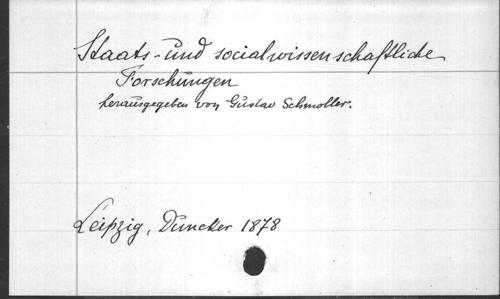 Staats- und socialwissenschaftliche
Forschungen
herausgegeben von Gustav Schmoller.
Leipzig, Duncker 1878